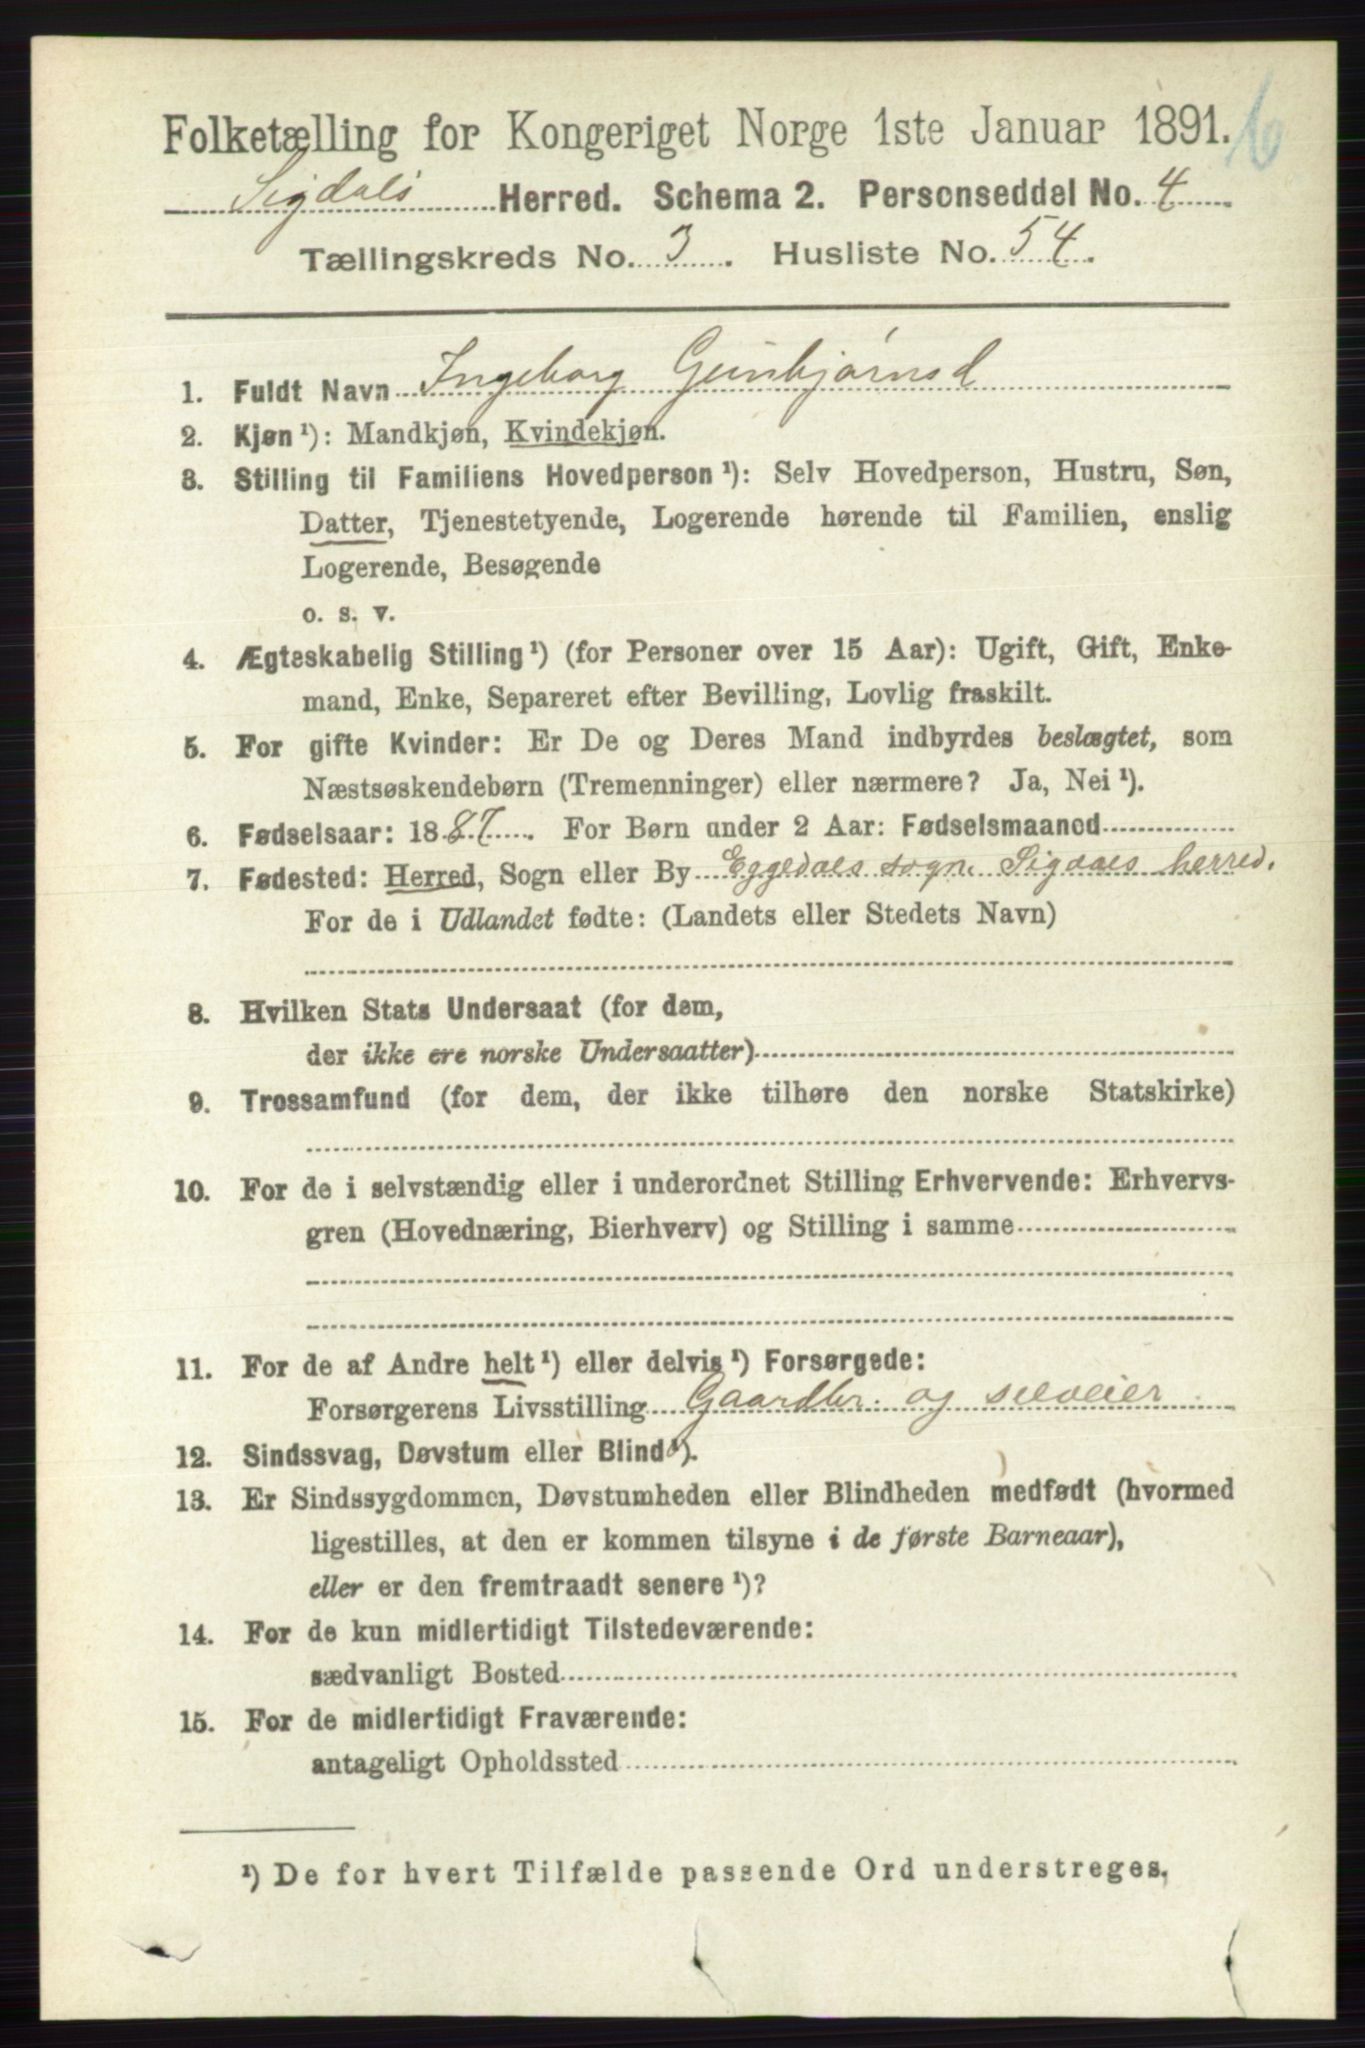 Folketælling for Kongeriget Norge 1ste Januar 1891. 6
Sigdals Herred. Schema 2. Personseddel No. 4
Tællingskreds No. 3. Husliste No. 54.
1. Fuldt Navn Ingeborg Gunbjørnsd
2. Kjøn ¹): Mandkjøn, Kvindekjøn.
3. Stilling til Familiens Hovedperson ¹): Selv Hovedperson, Hustru, Søn,
Datter, Tjenestetyende, Logerende hørende til Familien, enslig
Logerende, Besøgende
o. s. v.
4. Ægteskabelig Stilling ¹) (for Personer over 15 Aar): Ugift, Gift, Enke-
mand, Enke, Separeret efter Bevilling, Lovlig fraskilt.
5. For gifte Kvinder: Er De og Deres Mand indbyrdes beslægtet, som
Næstsøskendebørn (Tremenninger) eller nærmere? Ja, Nei ¹).
6. Fødselsaar: 1887. For Børn under 2 Aar: Fødselsmaaned
7. Fødested: Herred, Sogn eller By Eggedals sogn. Sigdals herred.
For de i Udlandet fødte: (Landets eller Stedets Navn)
8. Hvilken Stats Undersaat (for dem,
der ikke ere norske Undersaatter)
9. Trossamfund (for dem, der ikke tilhøre den norske Statskirke)
10. For de i selvstændig eller i underordnet Stilling Erhvervende: Erhvervs-
gren (Hovednæring, Bierhverv) og Stilling i samme
11. For de af Andre helt ¹) eller delvis ¹) Forsørgede:
Forsørgerens Livsstilling Gaardbr. og selveier
12. Sindssvag, Døvstum eller Blind ¹).
13. Er Sindssygdommen, Døvstumheden eller Blindheden medfødt (hvormed
ligestilles, at den er kommen tilsyne i de første Barneaar),
eller er den fremtraadt senere ¹)?
14. For de kun midlertidigt Tilstedeværende:
sædvanligt Bosted
15. For de midlertidigt Fraværende:
antageligt Opholdssted
¹) De for hvert Tilfælde passende Ord understreges.